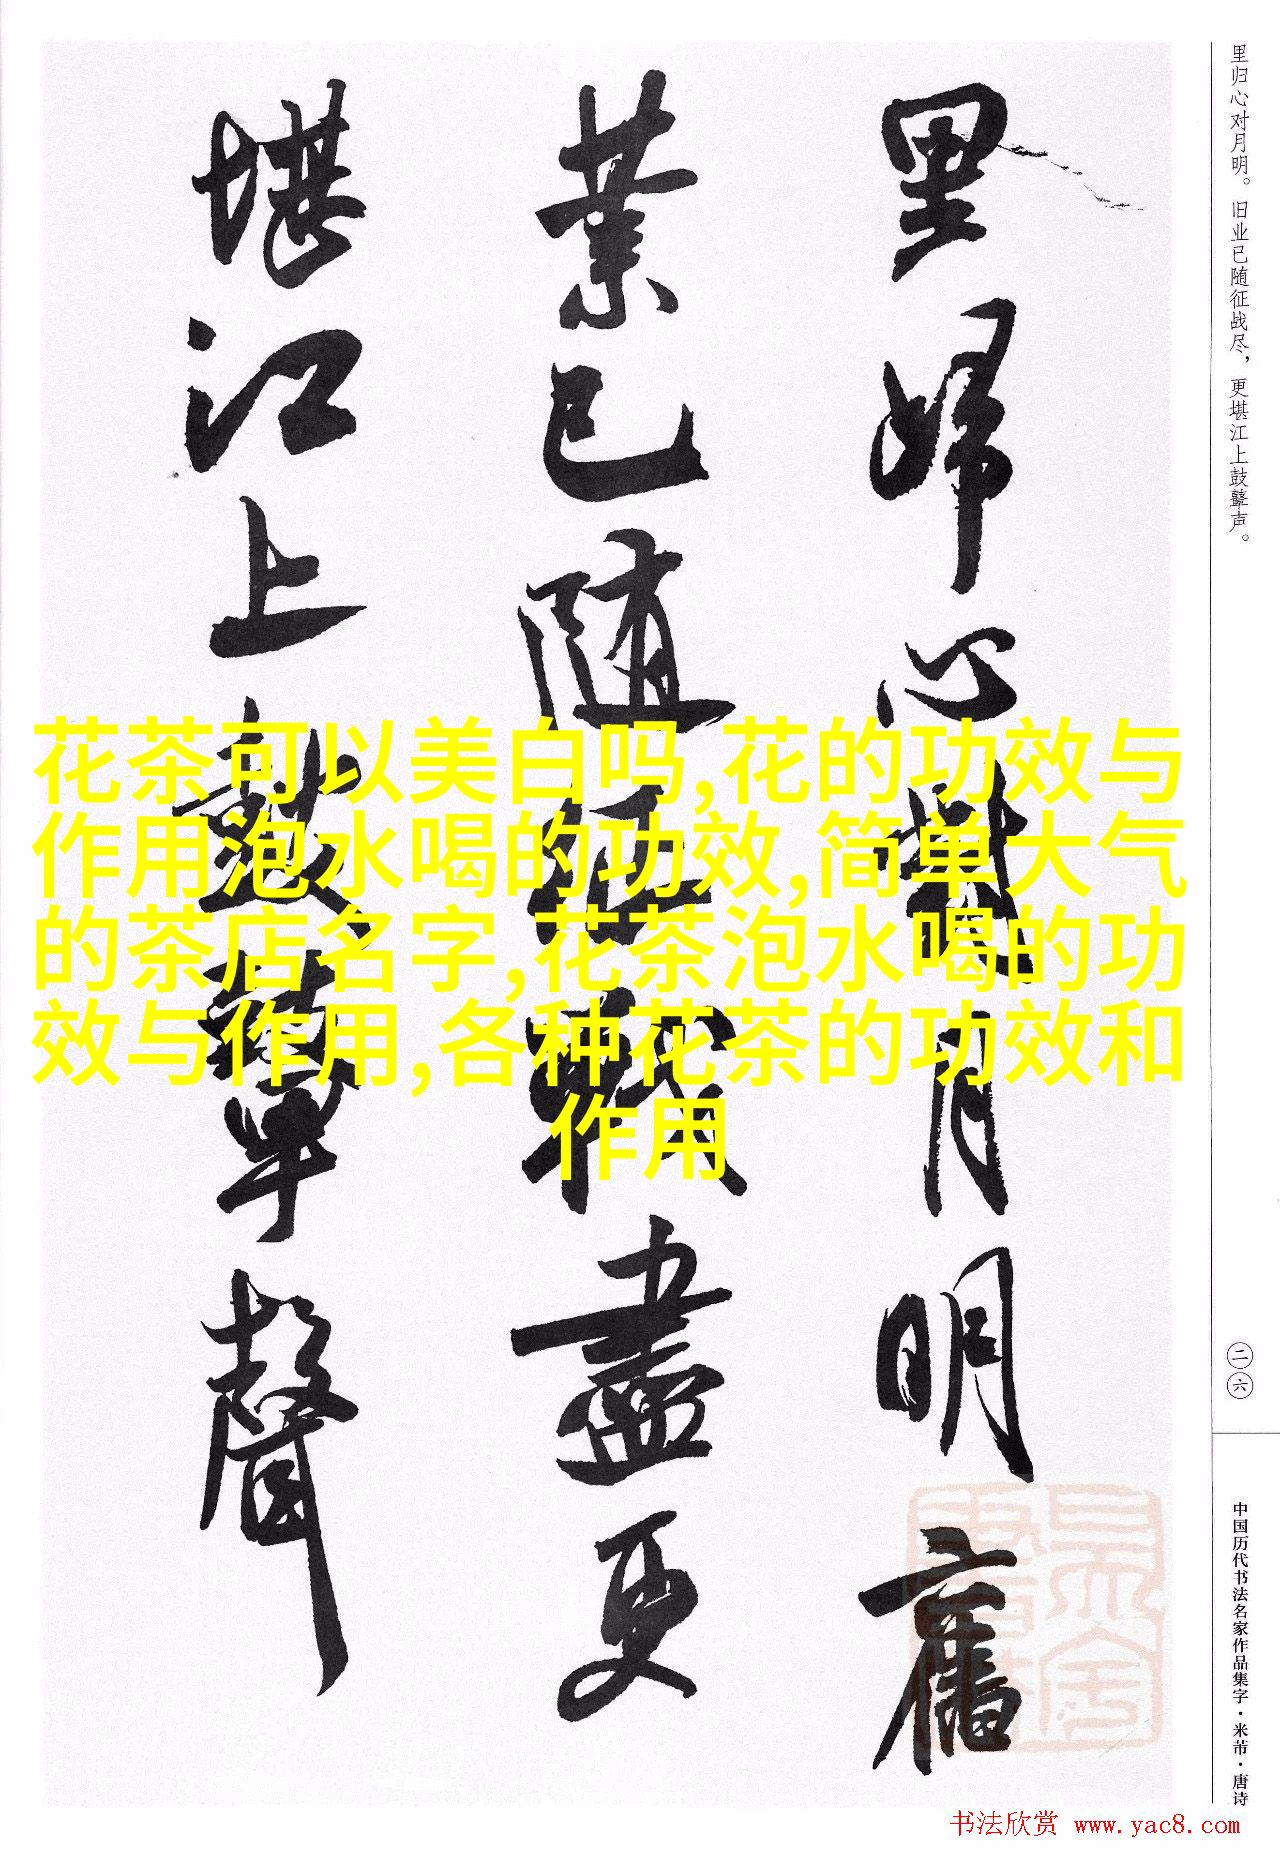 里归心对月明。旧业已随征战尽，更堪江上鼓鼙声。
里歸心對月明舊
業已随征戰盡更
堪江上鼓鼙聲
花茶可以美白吗,花的功效与
作用泡水喝的功效,简单大气
的茶店名字,花茶泡水喝的功
效与作用,各种花茶的功效和
作用
二六
中国历代书法名家作品集字·米芾·唐诗
书法欣赏 www.yac8.com